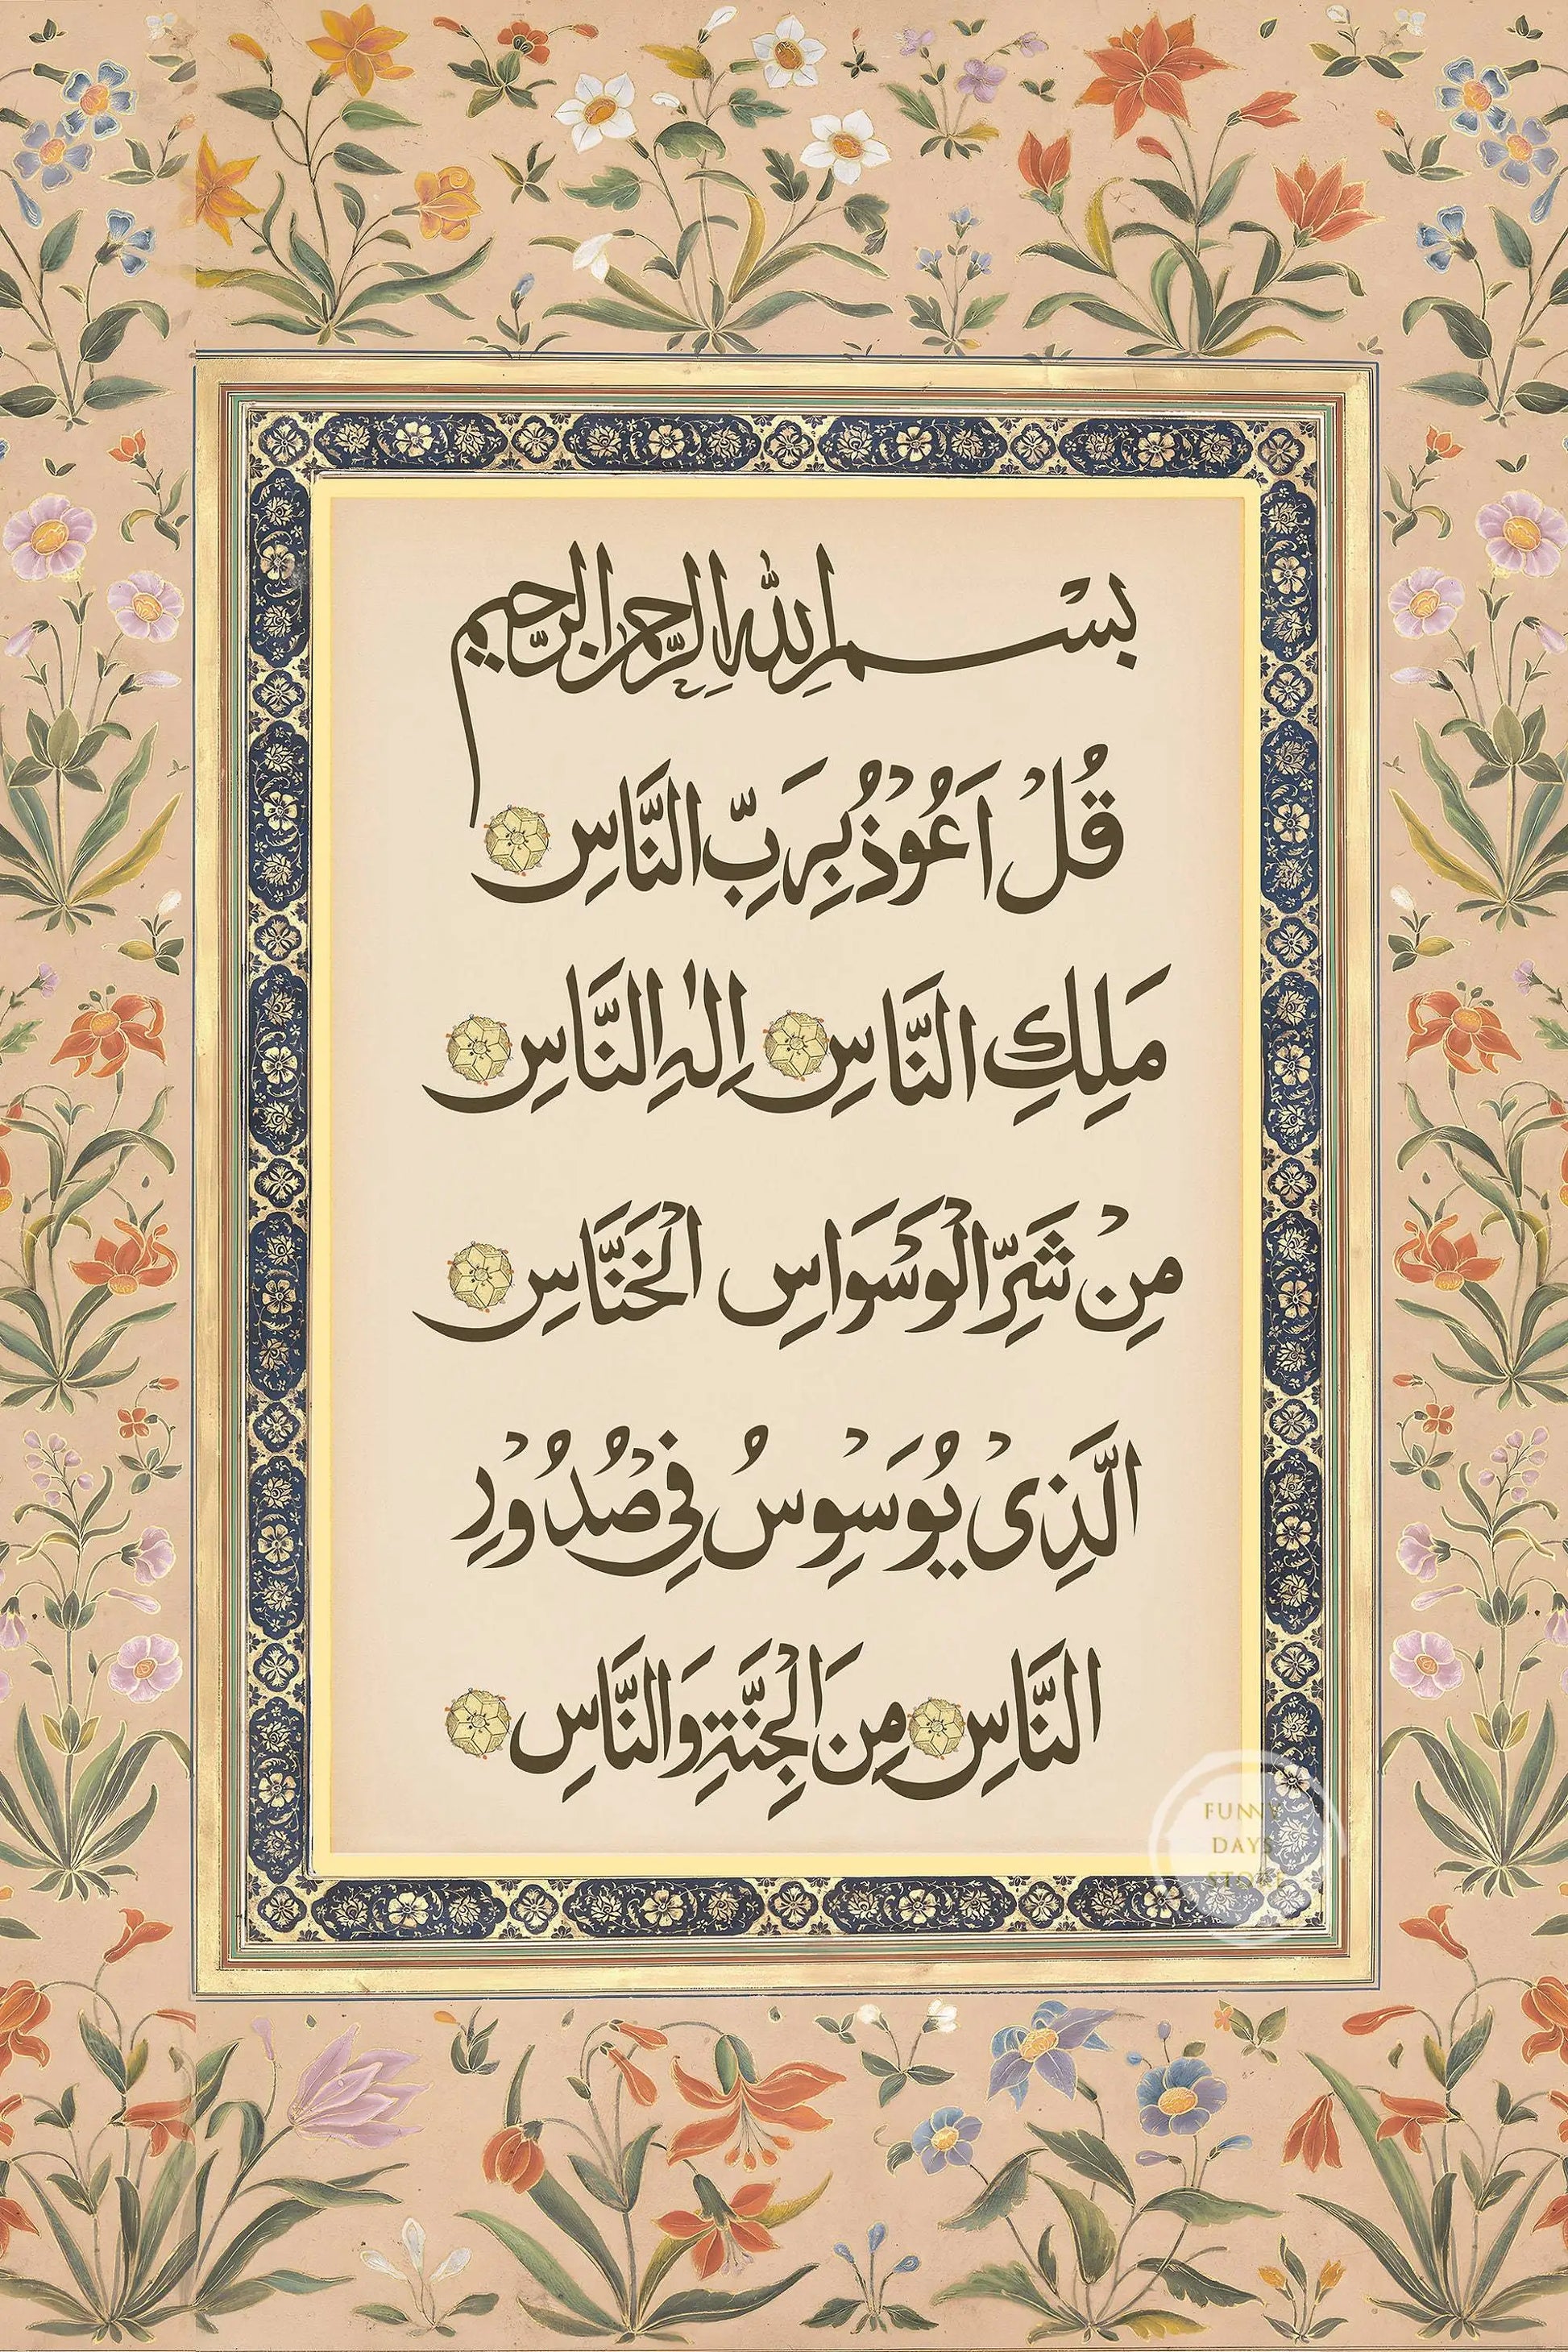 بِسْمِ اللهِ الرَّحْمٰنِ الرَّحِيمِ
قُلْ اَعُوْذُ بِرَبِّ النَّاسِ
مَلِكِ النَّاسِ اِلٰهِ النَّاسِ
مِنْ شَرِّ الْوَسْوَاسِ الْخَنَّاسِ
الَّذِىْ يُوَسْوِسُ فِىْ صُدُوْرِ
النَّاسِ مِنَ الْجِنَّةِ وَالنَّاسِ
FUNNY
DAYS
STORE